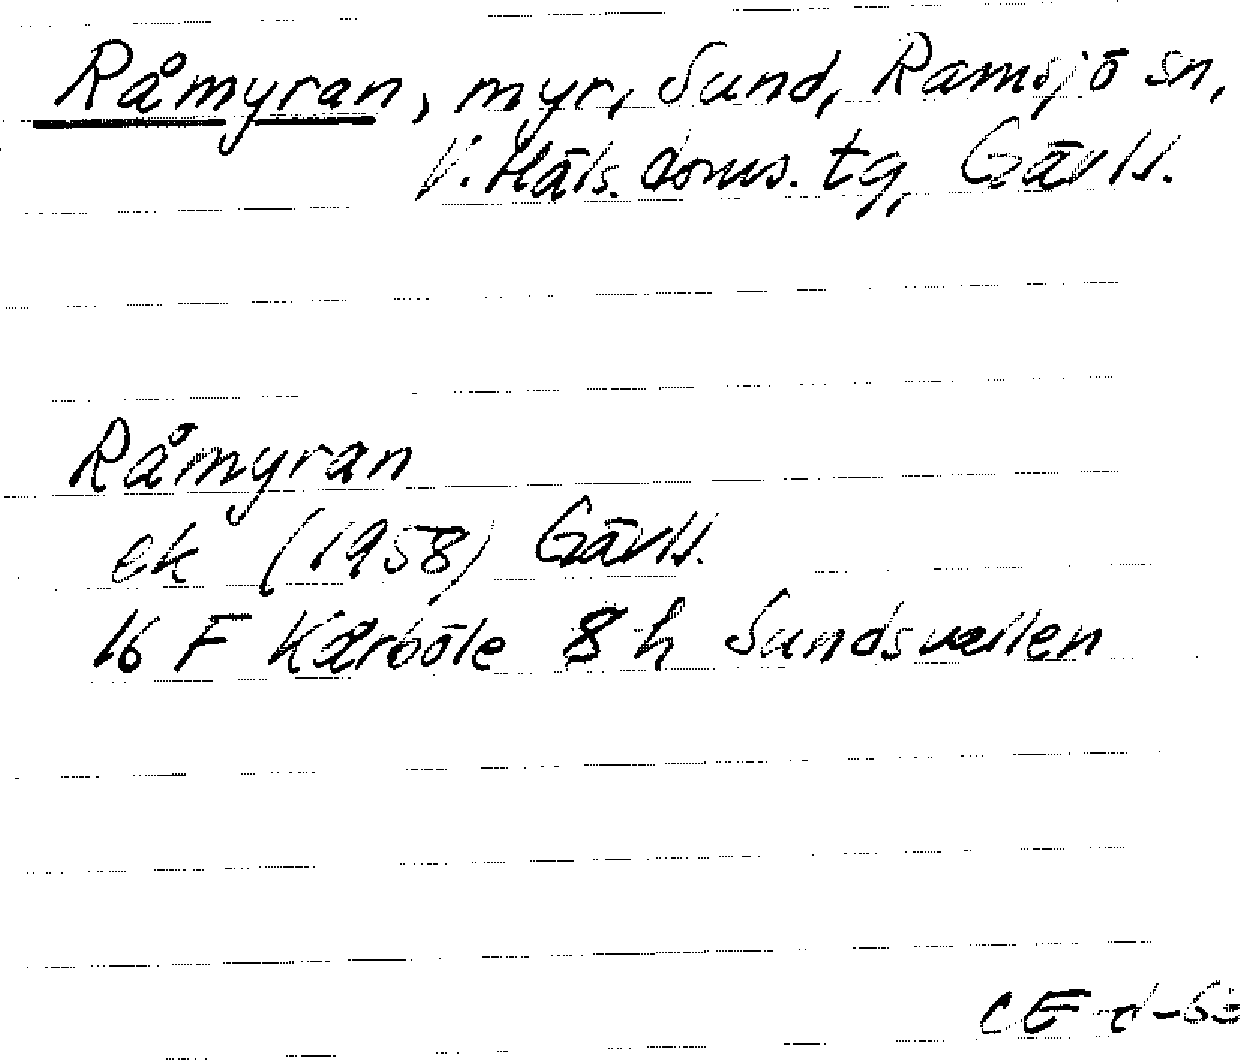 Råmyran, myr, Sund, Ramsjö sn,
V. Häls. doms. tg, Gävll.
Råmyran
ek (1958) Gävll.
16 F Kårböle 8 h Sundsvallen
CE